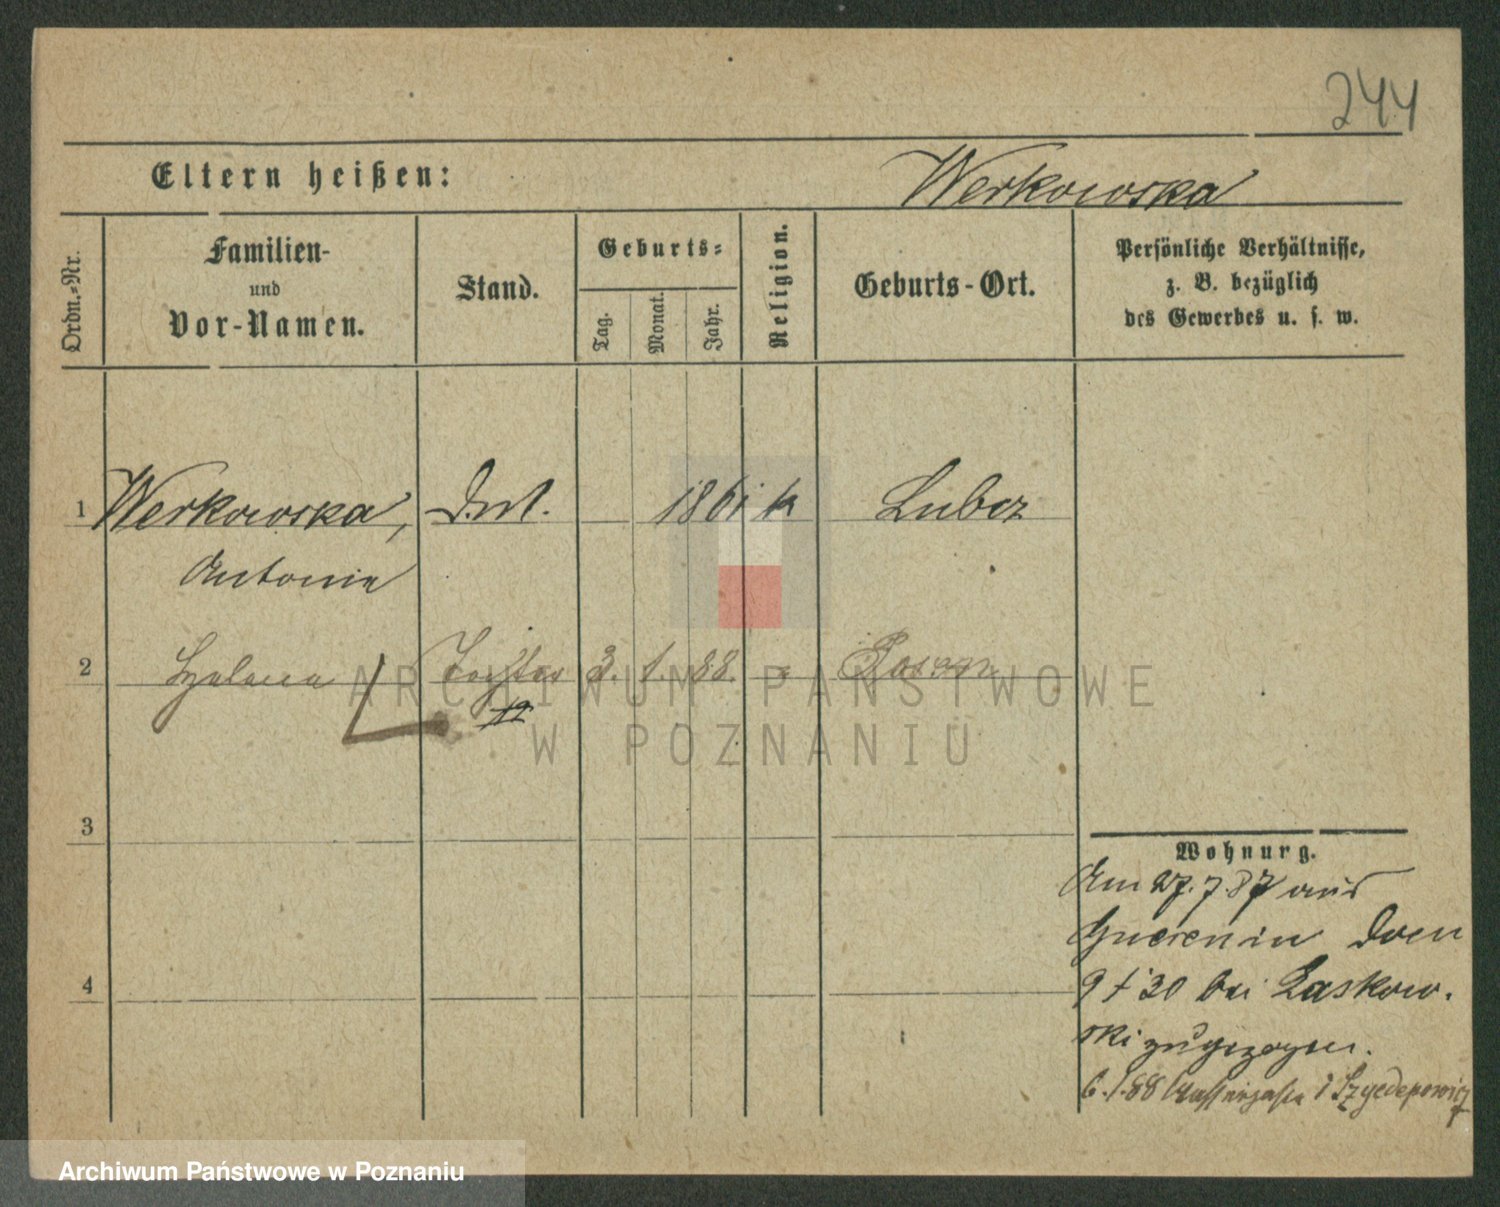 244
Eltern heißen:
Werkowska
Ordn.-Nr.
Familien-
und
Vor-Namen.
Stand.
Geburts-
Tag.
Monat.
Jahr.
Religion.
Geburts-Ort.
Persönliche Verhältnisse,
z. B. bezüglich
des Gewerbes u. s. w.
1 Werkowska, 1861 k
Antonie
2 Helena Tochter 3. 1. 88. Posen
3
4
Wohnung.
Am 27.7.87 aus
Gnesen in
9 / 30 bei Laskow-
ski zugezogen.
6.1.88
ARCHIWUM PAŃSTWOWE
W POZNANIU
Archiwum Państwowe w Poznaniu